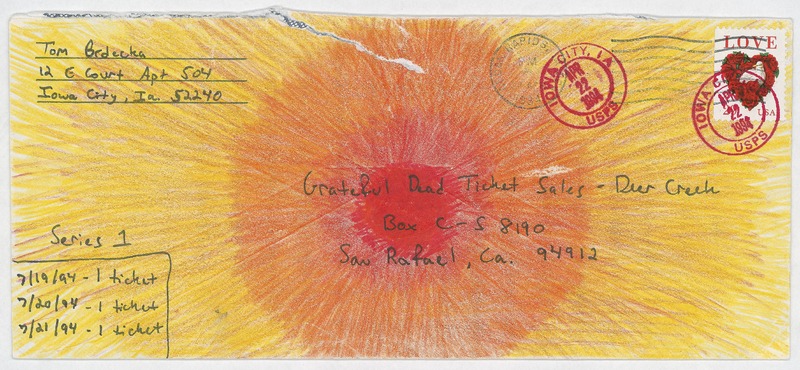 Tom Brdecka
12 E Court Apt 504
Iowa City, Ia. 52240
LOVE
USA
IOWA CITY, IA
APR
22
1994
USPS
IOWA C
APR
22
1994
USPS
Grateful Dead Ticket Sales - Deer Creek
Box C-S 8190
San Rafael, Ca. 94912
Series 1
7/19/94 - 1 ticket
7/20/94 - 1 ticket
7/21/94 - 1 ticket